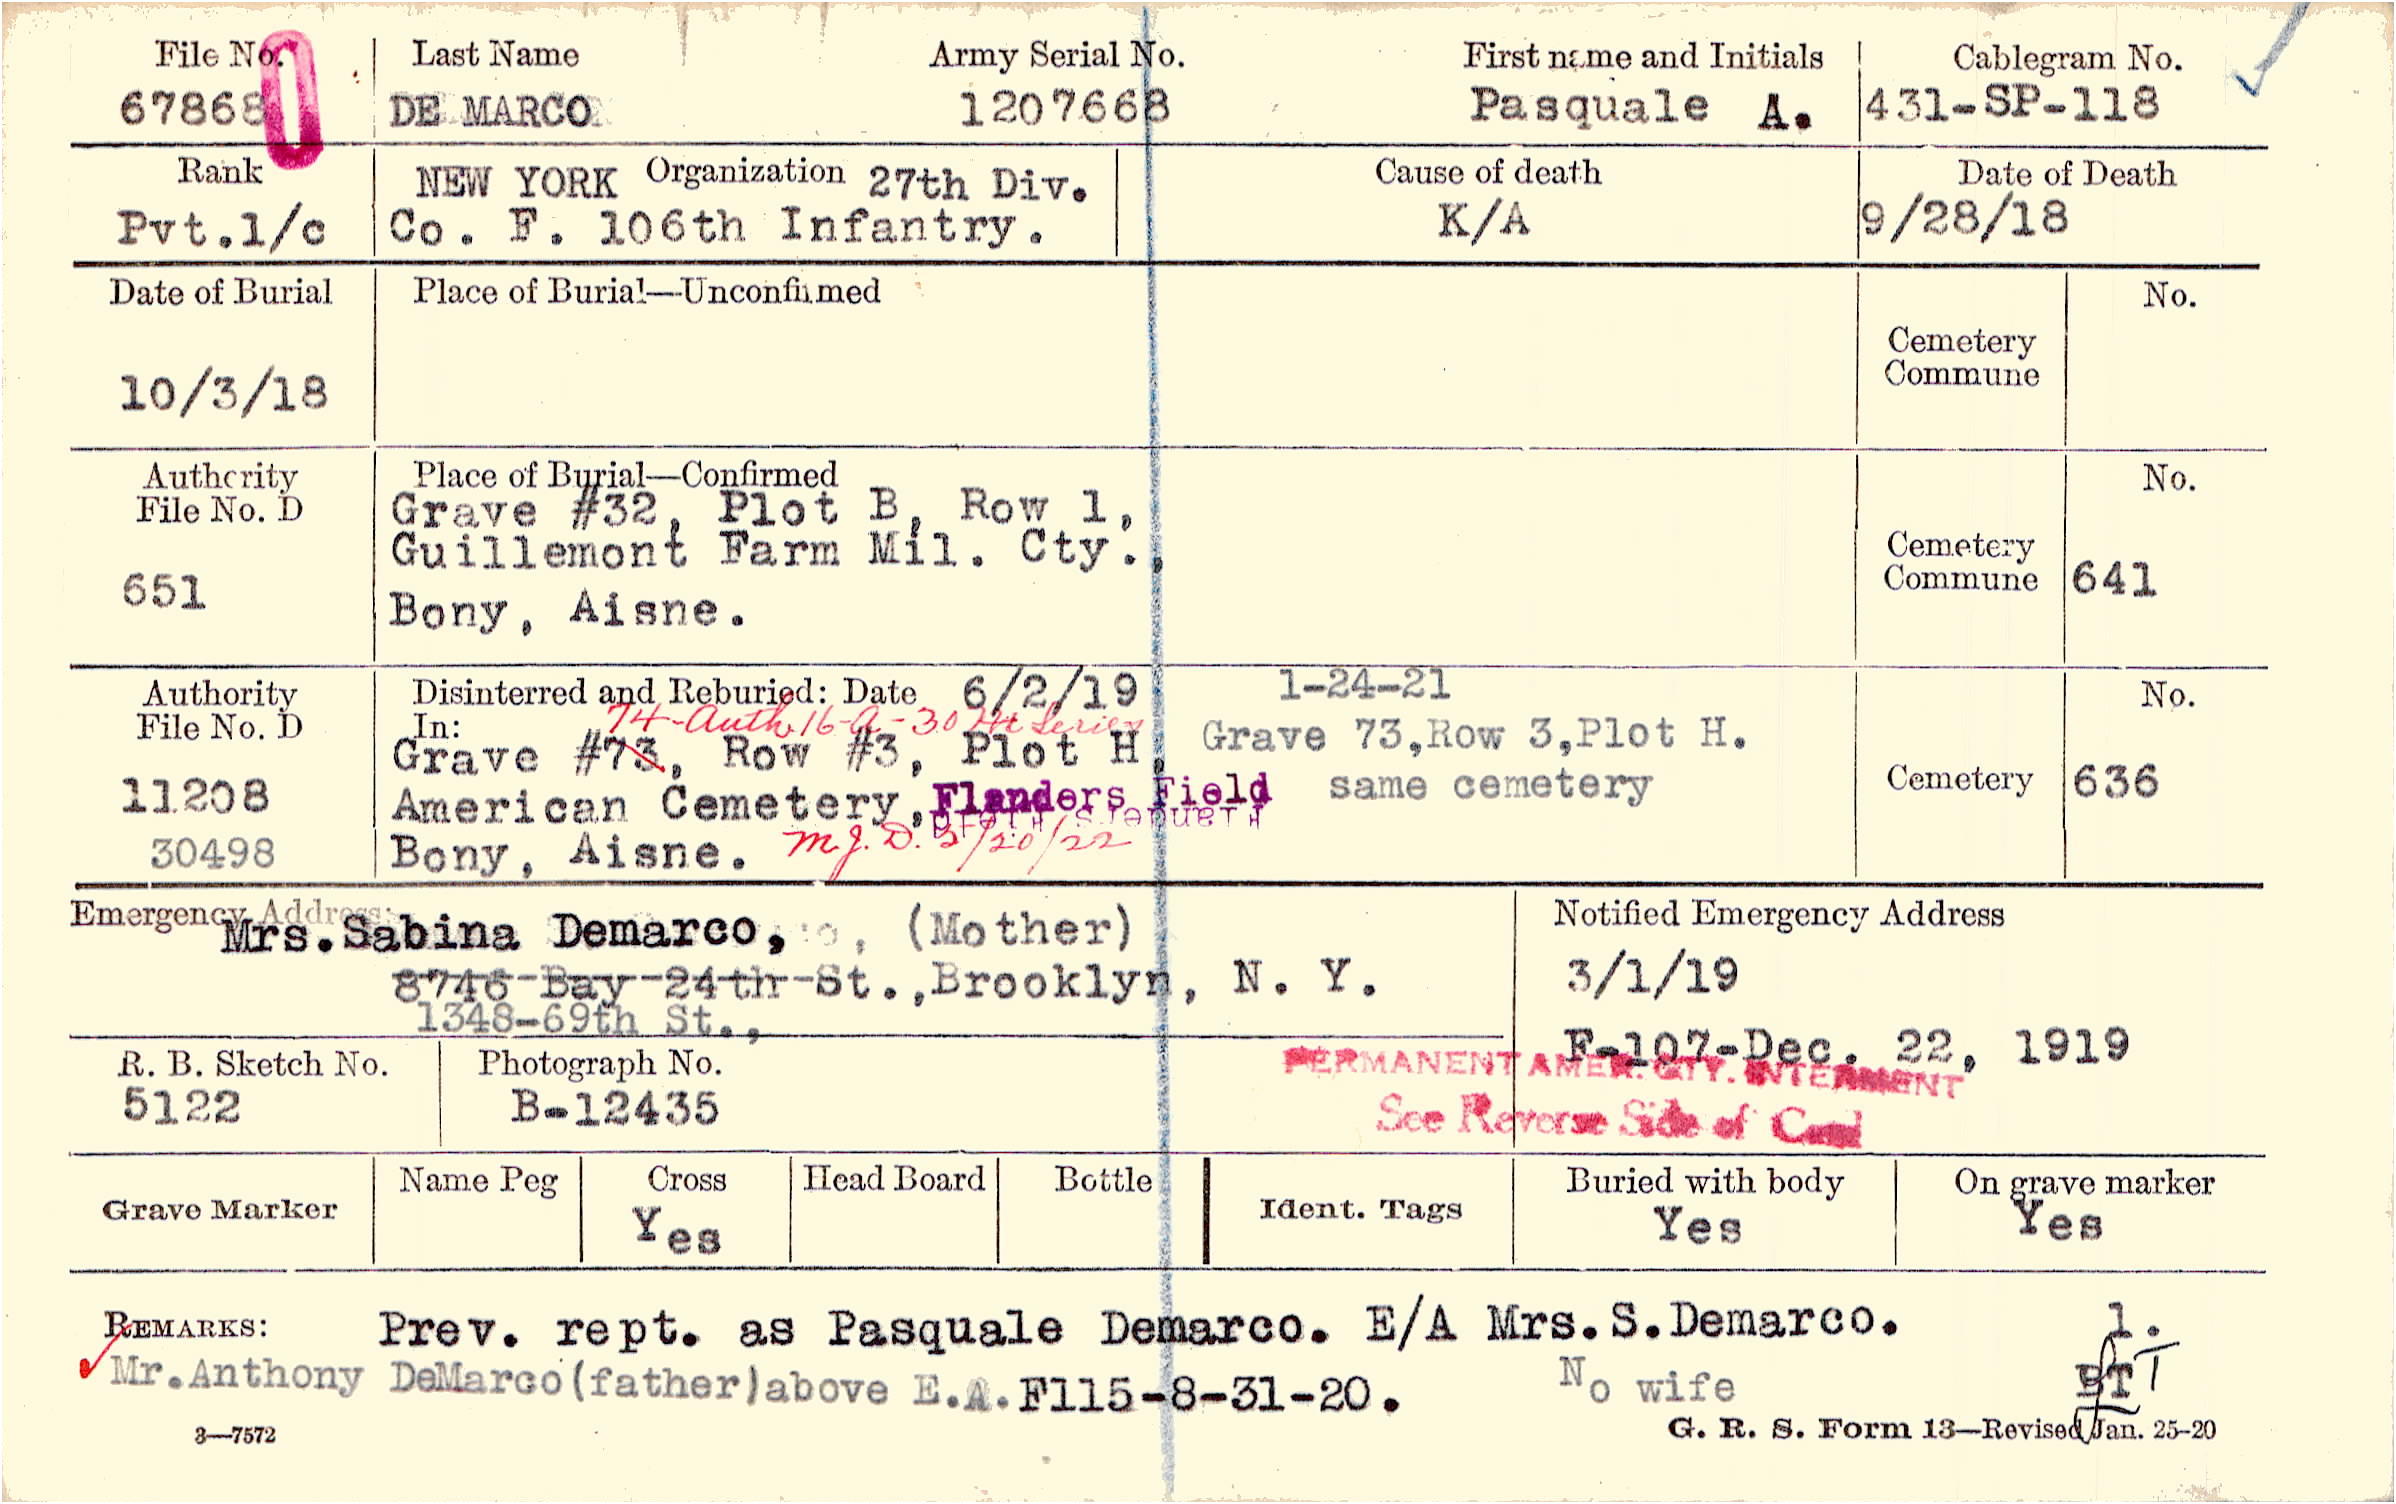 File No. Last Name Army Serial No. First name and Initials Cablegram No.
67868 DE MARCO 1207668 Pasquale A. 431-SP-118
Rank NEW YORK Organization 27th Div. Cause of death Date of Death
Pvt.1/c Co. F. 106th Infantry. K/A 9/28/18
Date of Burial Place of Burial—Unconfirmed No.
Cemetery
Commune
10/3/18
Authority Place of Burial—Confirmed No.
File No. D Grave #32, Plot B, Row 1,
Guillemont Farm Mil. Cty.,
Cemetery
651 Commune 641
Bony, Aisne.
Authority Disinterred and Reburied: Date 6/2/19 1-24-21 No.
File No. D In: 74-Auth. 16-a-30 Series
Grave #73, Row #3, Plot H, Grave 73,Row 3,Plot H.
11208 American Cemetery, Flanders Field same cemetery Cemetery 636
Flanders Field
30498 Bony, Aisne. M.J.D. 3/20/22
Emergency Address: Mrs.Sabina Demarco, (Mother) Notified Emergency Address
8746-Bay-24th-St.,Brooklyn, N. Y. 3/1/19
1348-69th St.,
F-107-Dec. 22, 1919
R. B. Sketch No. Photograph No. PERMANENT AMER. CTY. INTERMENT
5122 B-12435 See Reverse Side of Card
Grave Marker Name Peg Cross Head Board Bottle Ident. Tags Buried with body On grave marker
Yes Yes Yes
REMARKS: Prev. rept. as Pasquale Demarco. E/A Mrs.S.Demarco. 1.
Mr.Anthony DeMarco(father)above E.A.F115-8-31-20. No wife
3—7572 G. R. S. Form 13—Revised Jan. 25-20